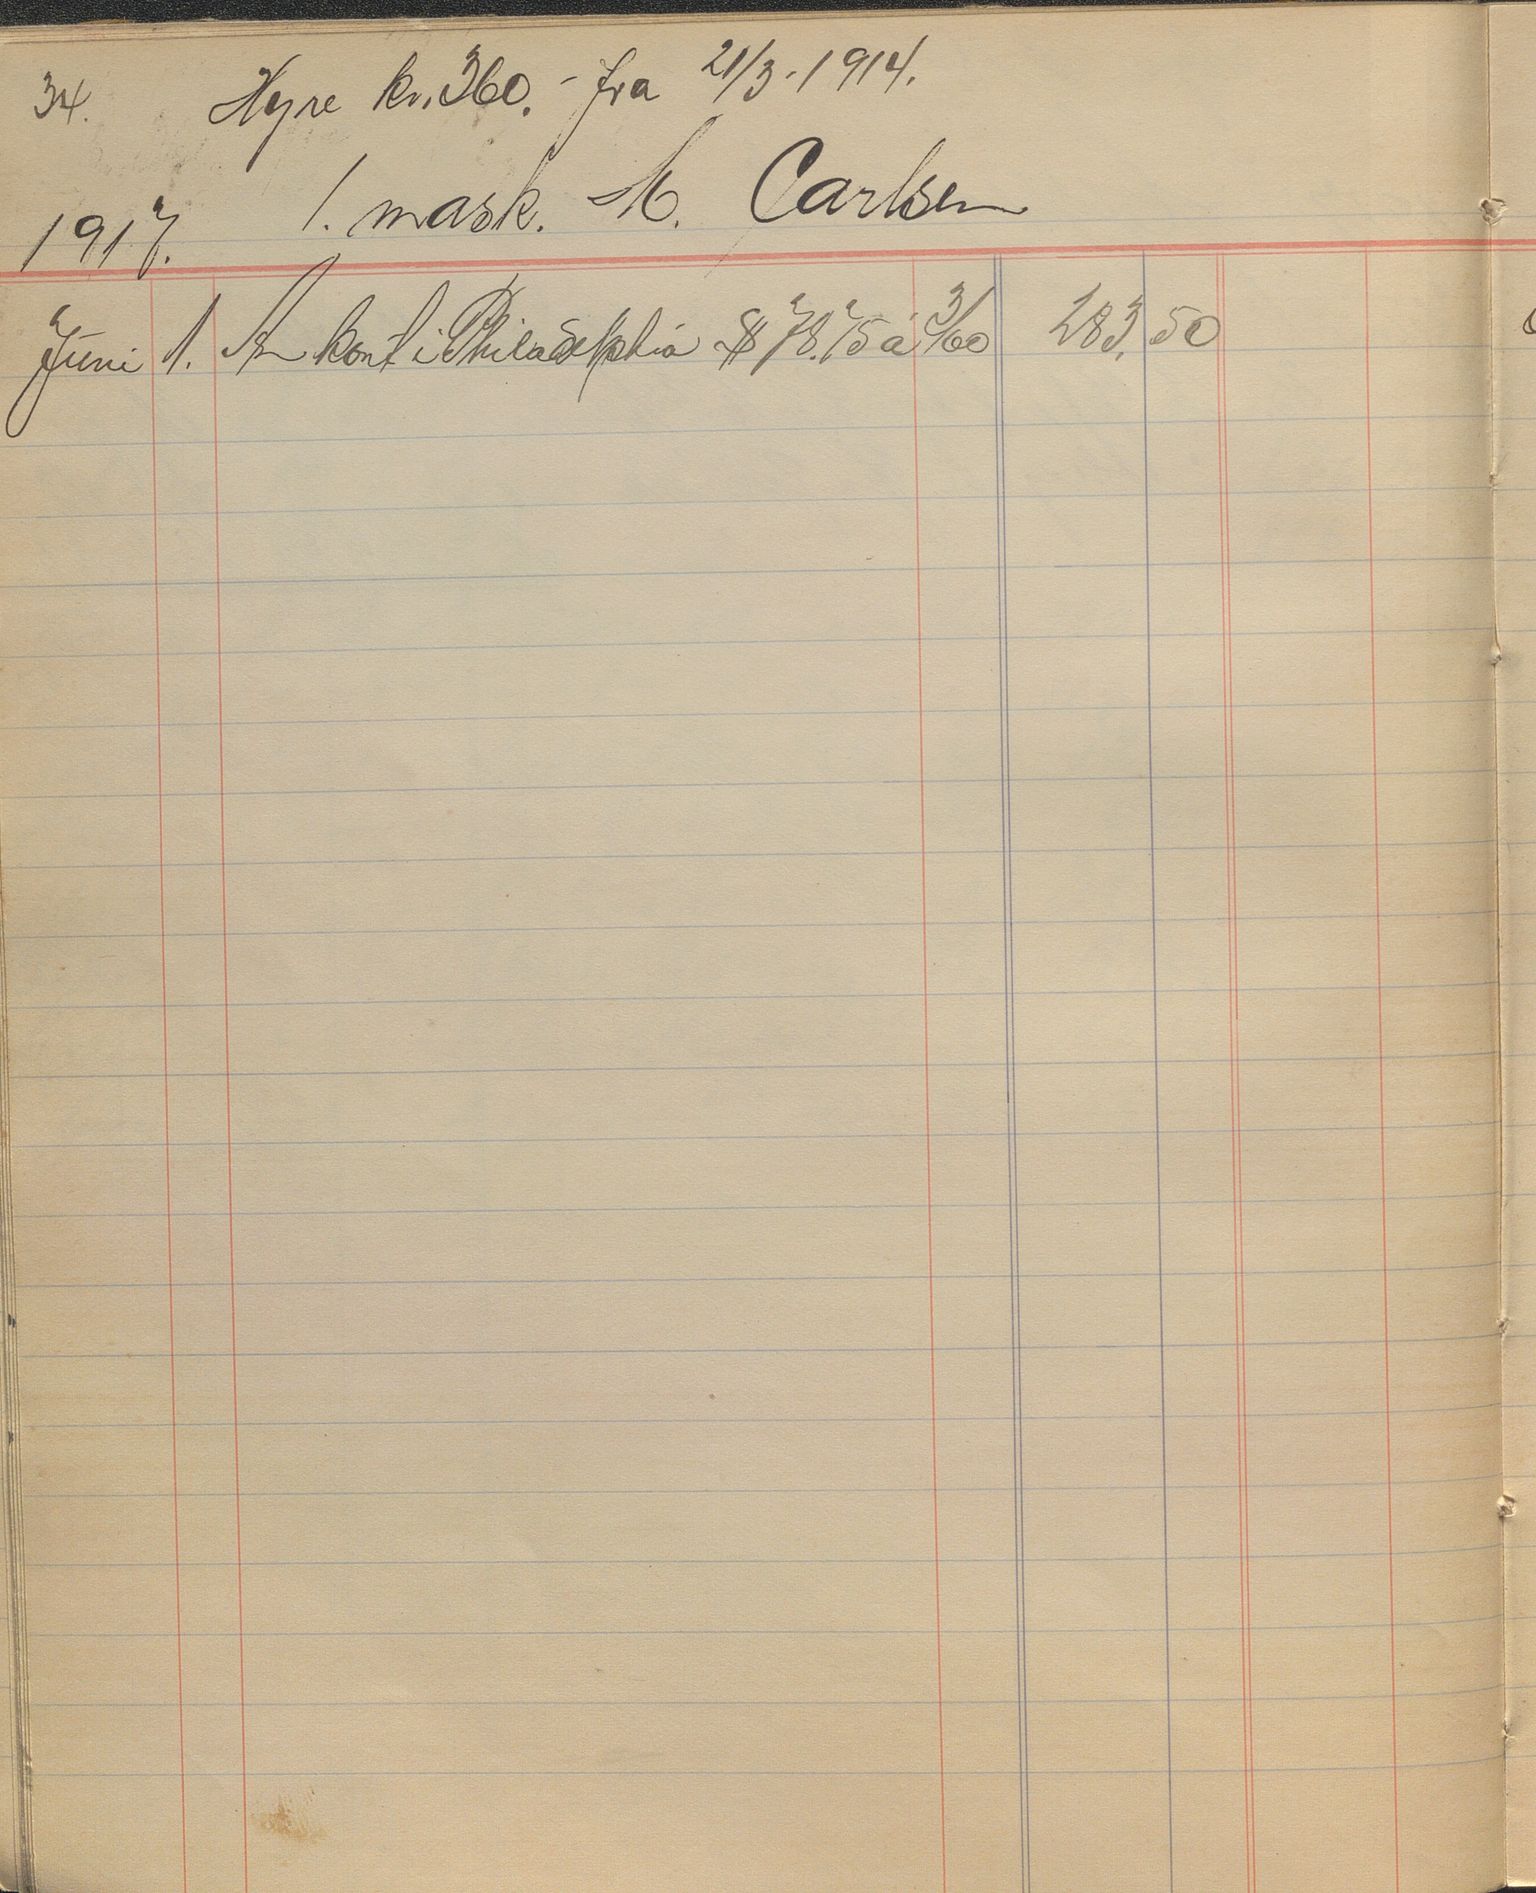 34. Hyre kr. 360.- fra 21/3-1914.
1. mask. M. Carlsen
1917.
Juni 1. Pr kont i Philadelphia $ 78.75 á 3/60 283,50